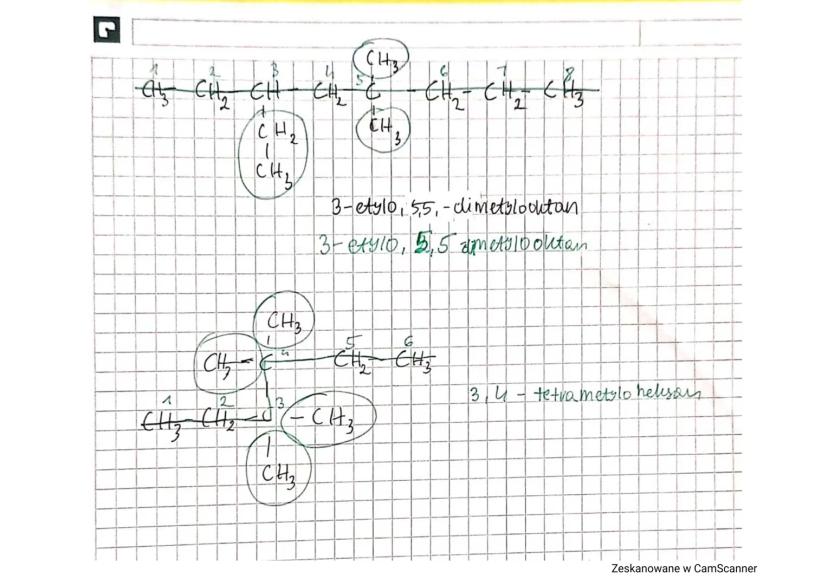 CH3
1 2 3 4 5 6 7 8
CH3 - CH2 - CH - CH2 - C - CH2 - CH2 - CH3
CH2 CH3
CH3
3-etylo, 5,5,-dimetylooktan
3-etylo, 5,5 dimetylooktan
CH3
4 5 6
CH3 - C - CH2 - CH3
1 2 3
CH3 - CH2 - C - CH3
CH3
3,4 - tetrametyloheksan
Zeskanowane w CamScanner